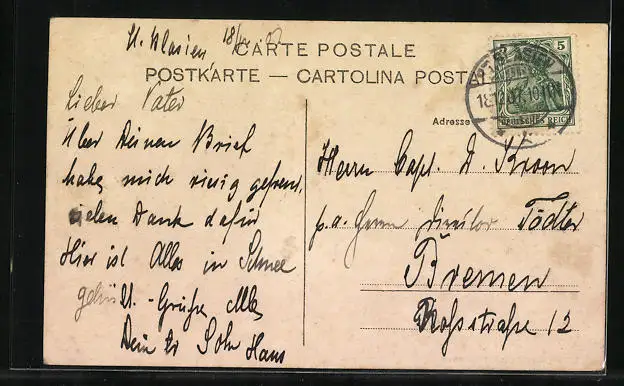 St. Blasien, 18/12.07
CARTE POSTALE
POSTKARTE — CARTOLINA POST
Lieber Vater
Über Deinen Brief
habe mich riesig gefreut.
vielen Dank dafür
Hier ist Alles in Schnee
Grüße
Dein tr Sohn Hans
Adresse
Herrn Capt. D. Kroon
p. a. Herrn Direktor Tödter
Bremen
Roßstraße 12
5
ST. BLASIEN
18.12.07.
DEUTSCHES REICH